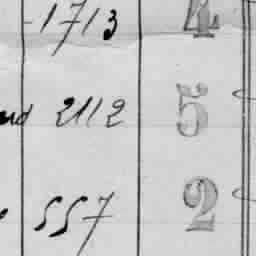 1713 4
2112 5
557 2